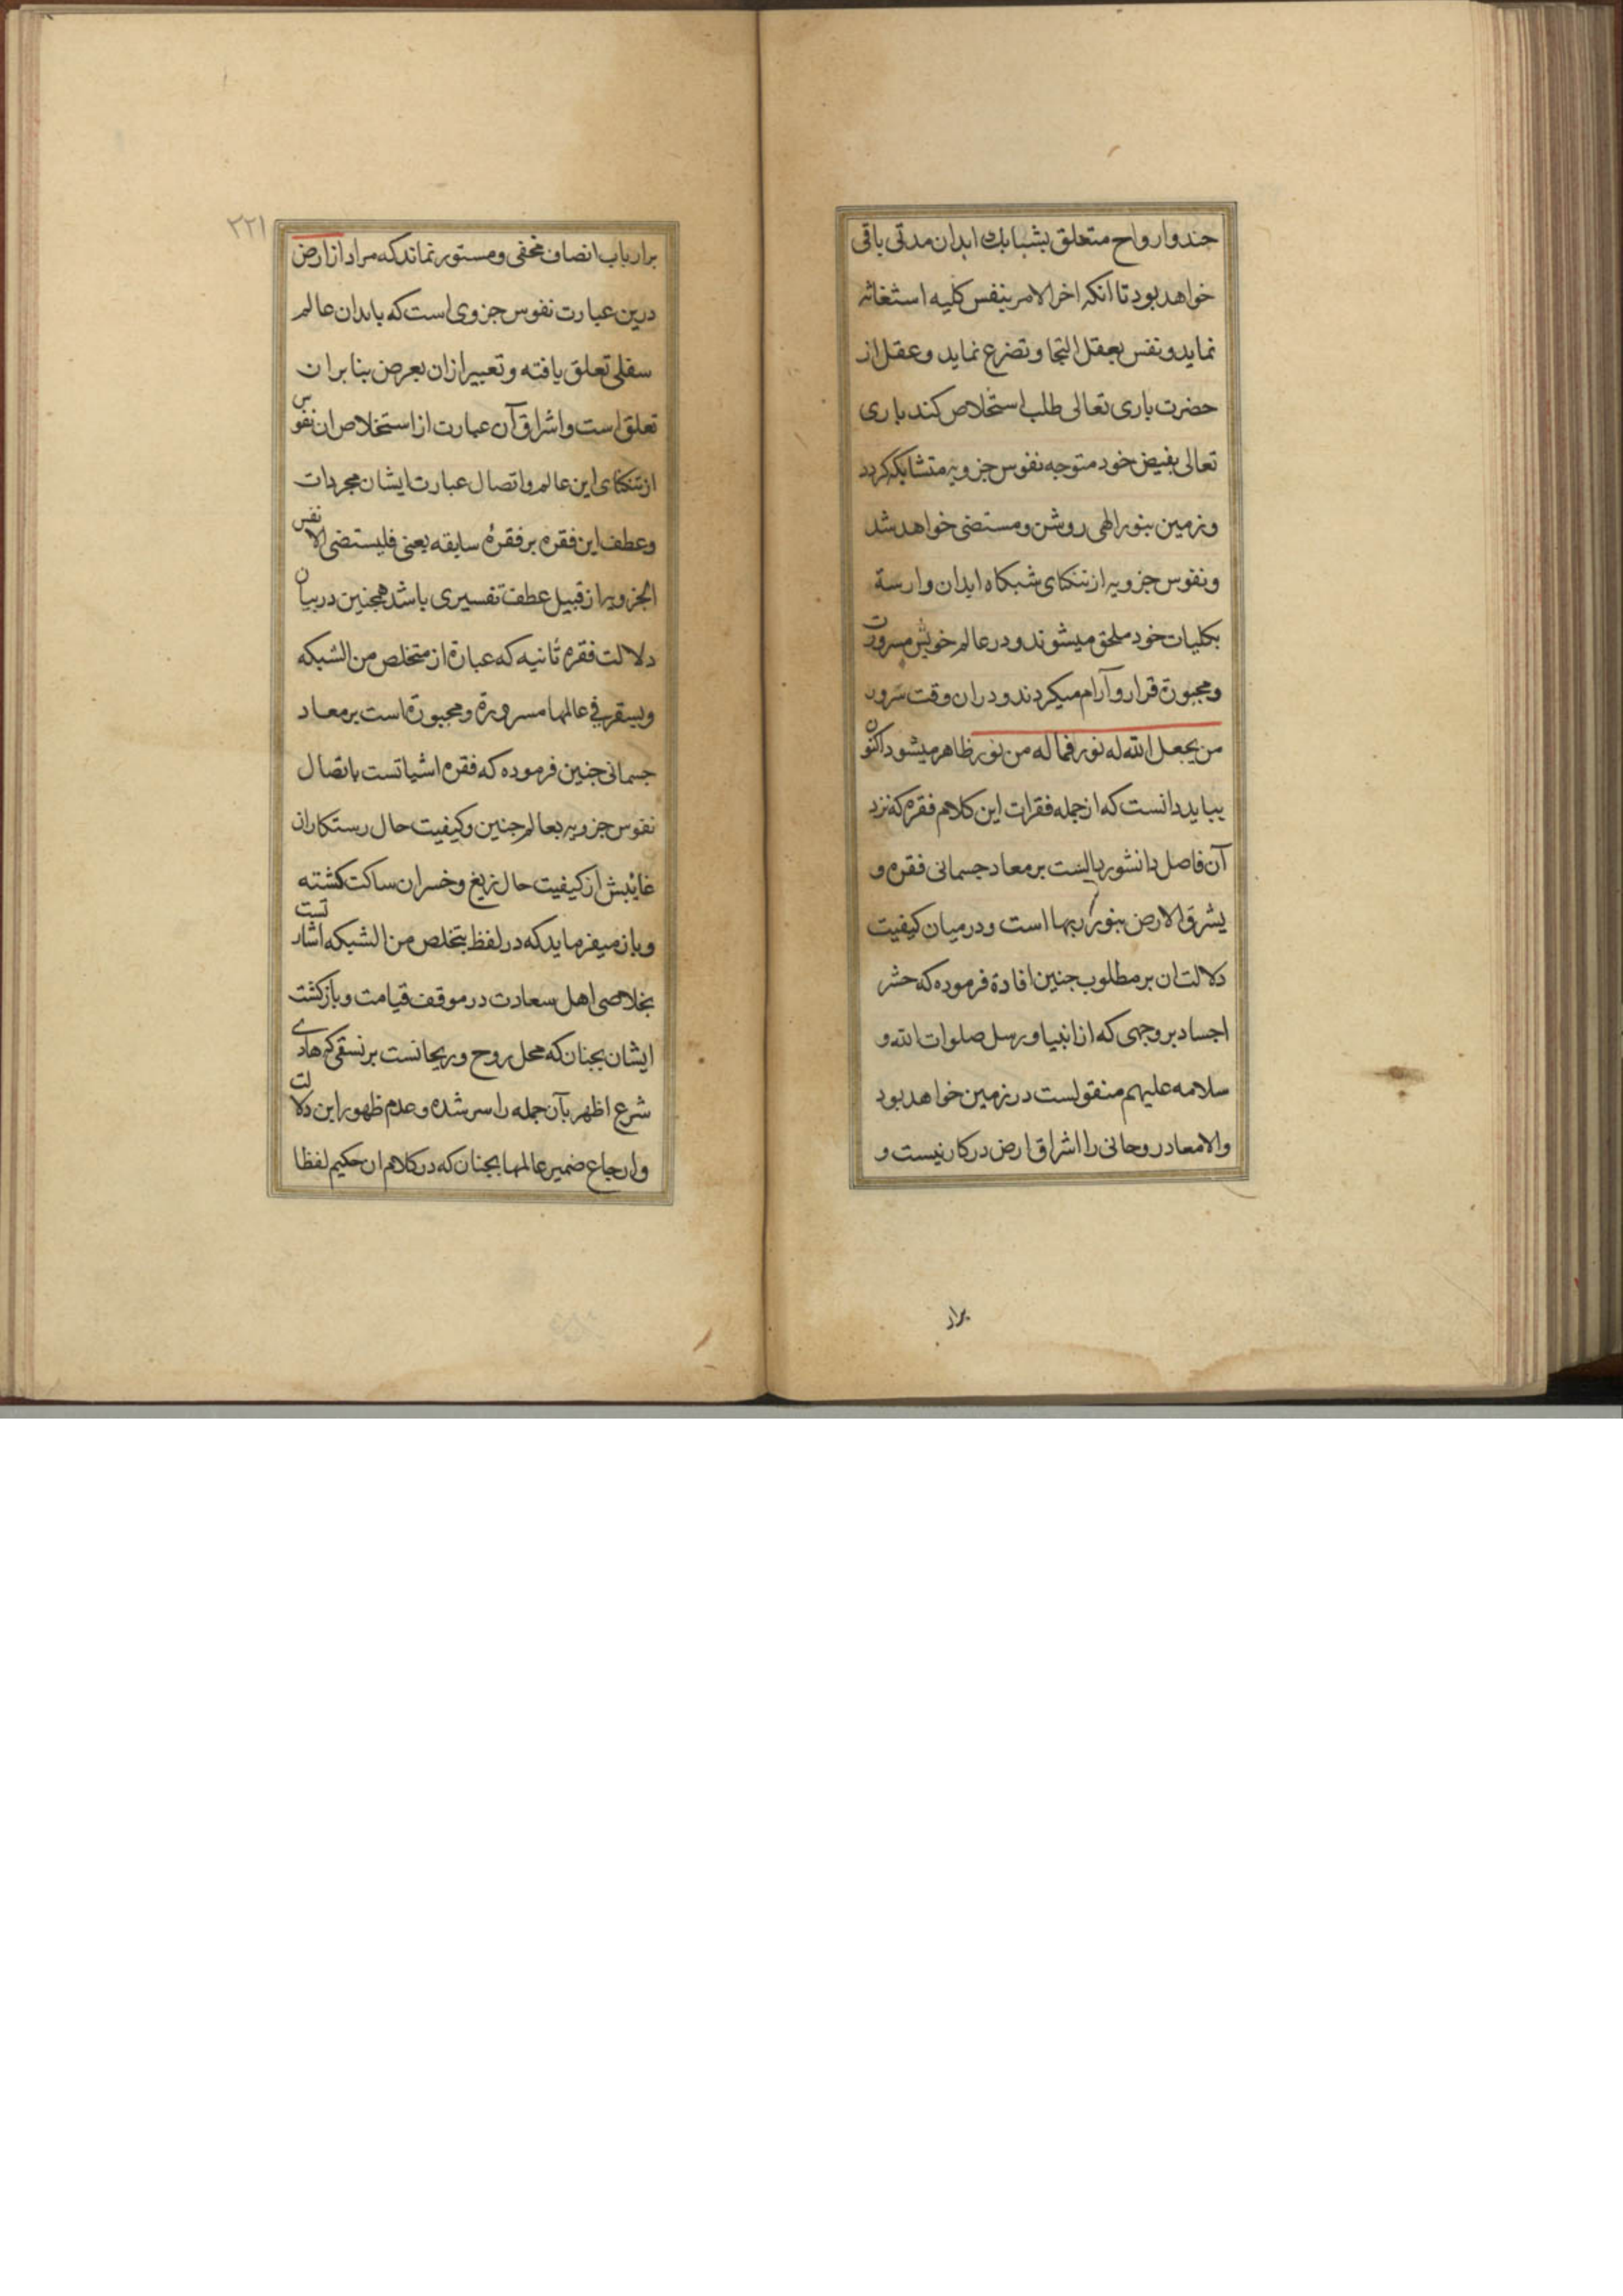 چند و ارواح متعلق بشبابك ابدان مدتی باقی
خواهد بود تا انکه اخرالامر بنفس کلیه استغاثه
نماید و نفس بعقل التجا و تضرع نماید و عقل از
حضرت باری تعالی طلب استخلاص کند باری
تعالی بفیض خود متوجه نفوس جزویه متشابکه کردد
و زمین بنور الهی روشن و مستضی خواهد شد
و نفوس جزویه از تنکنای شبکاه ابدان وارسة
بکلیات خود ملحق میشوند و در عالم خویش مسرورة
و مجبورة قرار و آرام میکردند و در ان وقت
من یجعل الله له نور فماله من نور ظاهر میشود اکنون
بباید دانست که از جمله فقرات این کلام فقره که نزد
آن فاصل دانشور دالست بر معاد جسمانی فقره و
یشرق الارض بنور ربها است و در میان کیفیت
دلالت ان بر مطلوب جنین افادة فرموده که حشر
اجساد بر وجهی که از انبیا و رسل صلوات الله و
سلامه علیهم منقولست در زمین خواهد بود
و الا معاد روحانی را اشراق ارض در کار نیست و
برار
۲۲۱
بر ارباب انصاف مخفی و مستور نماند که مراد از ارض
درین عبارت نفوس جزوی است که بابدان عالم
سفلی تعلق یافته و تعبیر ازان بعرض بنابر ان
تعلق است و اشراق آن عبارت از استخلاص ان نفوس
از تنکنای این عالم و اتصال عبارت ایشان مجردات
و عطف این فقره بر فقرهٔ سابقه یعنی فلیستضی الانفس
الجزویه از قبیل عطف تفسیری باشد همجنین در بیان
دلالت فقره ثانیه که عبارة از متخلص من الشبکه
و یستقر فی عالمها مسرورة و مجبورة است بر معاد
جسمانی جنین فرموده که فقره اشیاتست باتصال
نفوس جزویه بعالم جنین و کیفیت حال رستکاران
غایبش از کیفیت حال زیغ و خسران ساکت کشته
و باز میفرماید که در لفظ یتخلص من الشبکه اشارتست
بخلاصی اهل سعادت در موقف قیامت و بازکشت
ایشان بجنان که محل روح و ریحانست بر نسقی که هادی
شرع اظهر بآن جمله را سر شده و عدم ظهور این دلالت
و ارجاع ضمیر عالمها بجنان که در کلام ان حکیم لفظا